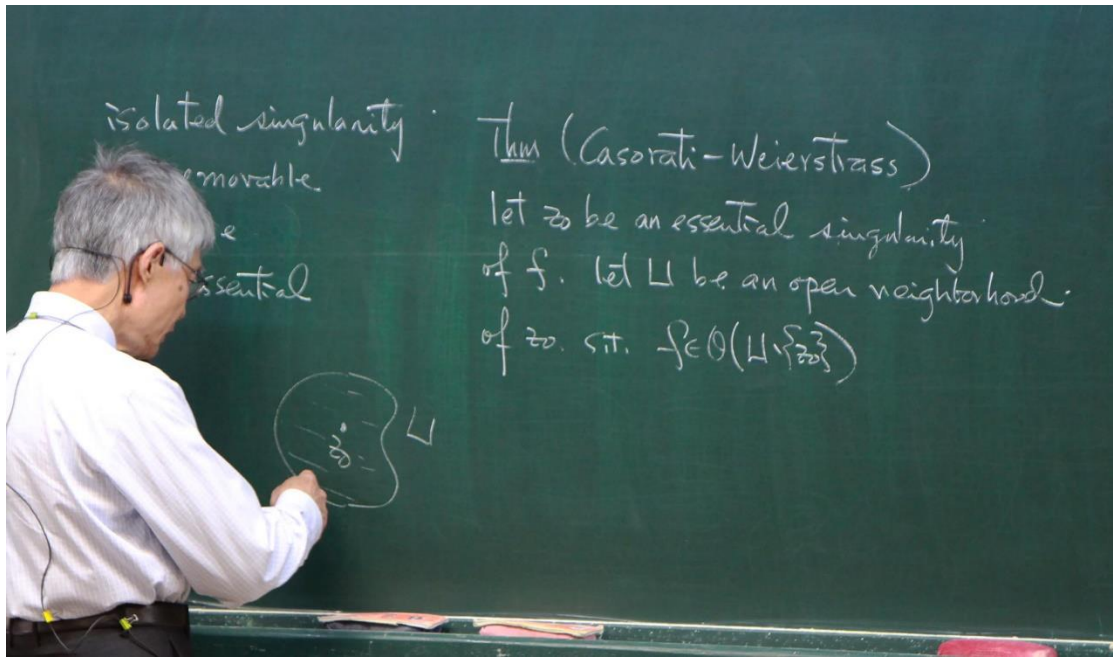 isolated singularity
emovable
e
ssential
Thm (Casorati-Weierstrass)
let z₀ be an essential singularity
of f. let U be an open neighborhood.
of z₀. s.t. f∈O(U∖{z₀})
z₀
U